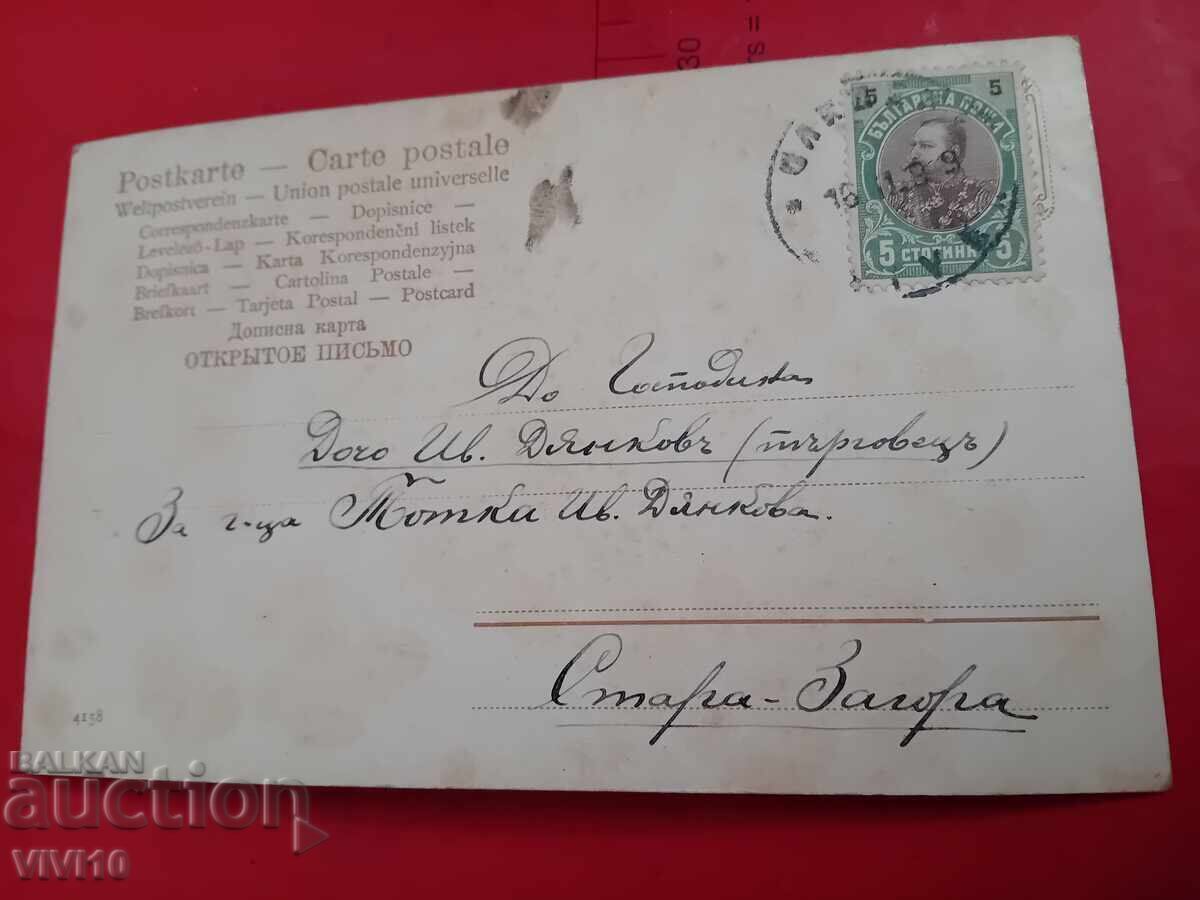 30
rs =
Postkarte — Carte postale
Weltpostverein — Union postale universelle
Correspondenzkarte — Dopisnice —
Levelező-Lap — Korespondenční listek
Dopisnica — Karta Korespondenzyjna
Briefkaart — Cartolina Postale —
Brefkort — Tarjeta Postal — Postcard
Дописна карта
ОТКРЫТОЕ ПИСЬМО
5 5
БЪЛГАРСКА ПОЩА
5 СТОТИНКИ 5
До Господина
Дочо Ив. Дянковъ (търговецъ)
За г-ца Тотка Ив. Дянкова.
Стара-Загора
4158
BALKAN
auction
VIVI10